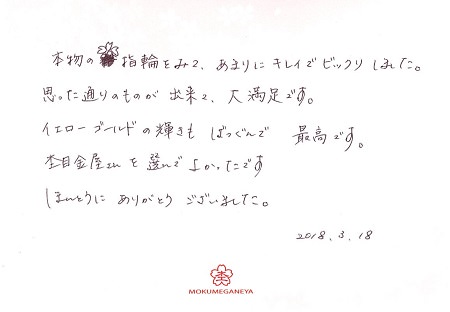 本物の指輪をみて、あまりにキレイでビックリしました。
思った通りのものが出来て、大満足です。
イエローゴールドの輝きもばっぐんで 最高です。
杢目金屋さんを選んでよかったです
ほんとうにありがとうございました。
2018.3.18
MOKUMEGANEYA